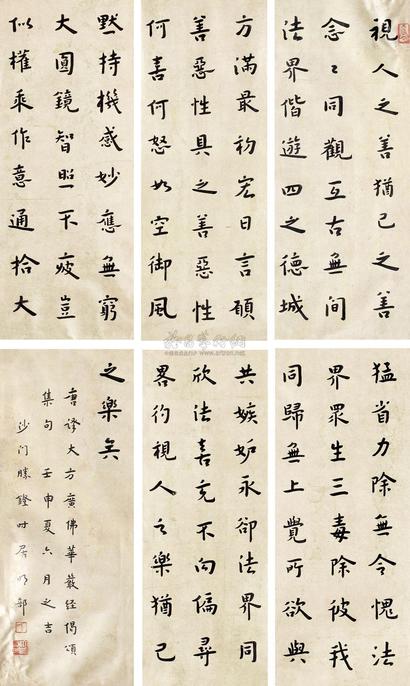 視人之善猶己之善
念々同觀互古無間
法界偕遊四之德城
方滿最初宏日言碩
善惡性具之善惡性
何喜何怒如空御風
默持機感妙應無窮
大圓鏡智照不疲豈
似權乘作意通拾大
猛省力除無令愧法
界眾生三毒除彼我
同歸無上覺所欲與
共嫉妒永卻法界同
欣法喜充不向偏尋
略約視人之樂猶己
之樂矣
唐譯大方廣佛華嚴經偈頌
集句壬申夏六月之吉
沙門勝鐙時居明部